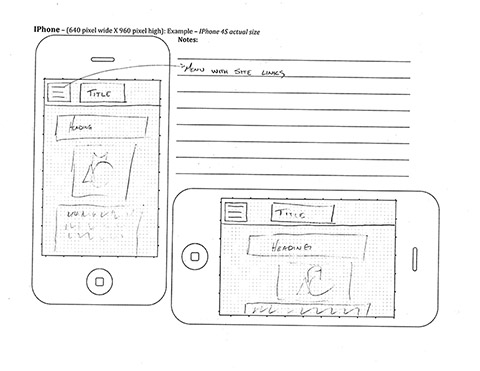 IPhone – (640 pixel wide X 960 pixel high): Example – IPhone 4S actual size
Notes:
MENU WITH SITE LINKS
TITLE
HEADING
TITLE
HEADING